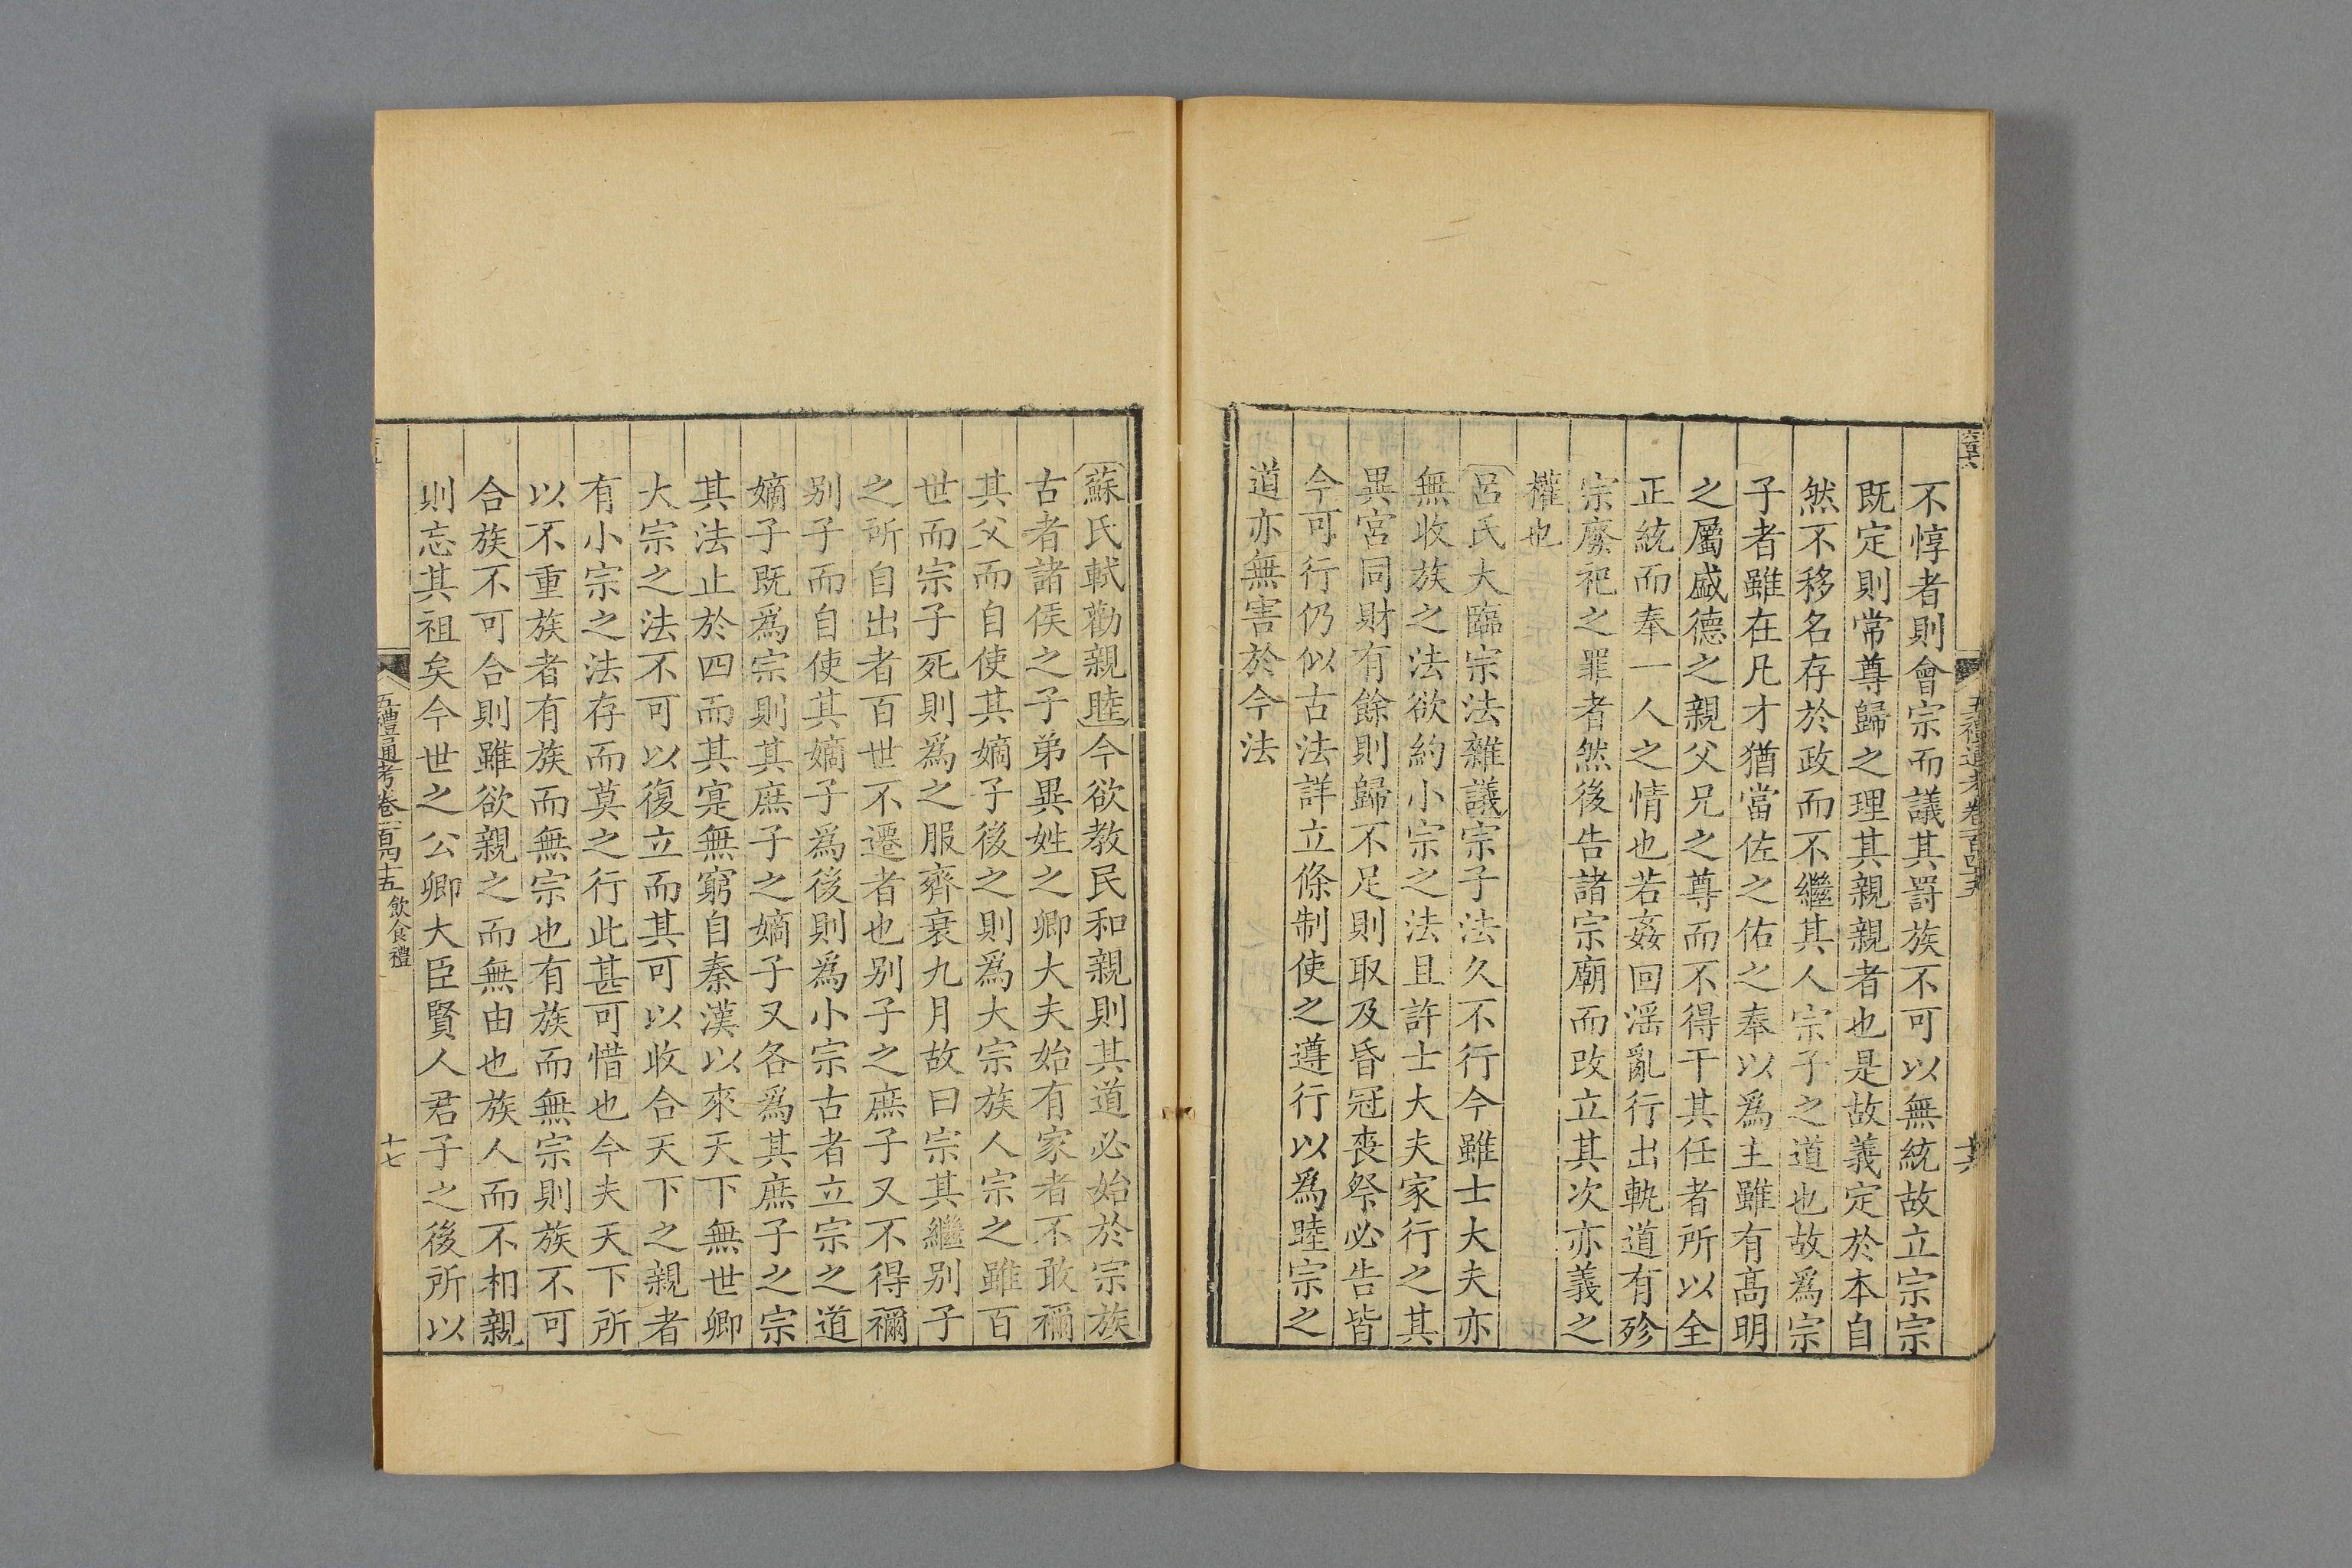 不惇者則會宗而議其罸族不可以無統故立宗宗
既定則常尊歸之理其親親者也是故義定於本自
然不移名存於政而不繼其人宗子之道也故爲宗
子者雖在凡才猶當佐之佑之奉以爲主雖有高明
之屬盛德之親父兄之尊而不得干其任者所以全
正統而奉一人之情也若姦回淫亂行出軌道有殄
宗廢祀之罪者然後告諸宗廟而改立其次亦義之
權也
呂氏大臨宗法雜議宗子法久不行今雖士大夫亦
無收族之法欲約小宗之法且許士大夫家行之其
異宮同財有餘則歸不足則取及昏冠喪祭必告皆
今可行仍似古法詳立條制使之遵行以爲睦宗之
道亦無害於今法
蘇氏軾勸親睦今欲教民和親則其道必始於宗族
古者諸侯之子弟異姓之卿大夫始有家者不敢禰
其父而自使其嫡子後之則爲大宗族人宗之雖百
世而宗子死則爲之服齊衰九月故曰宗其繼别子
之所自出者百世不遷者也别子之庶子又不得禰
别子而自使其嫡子爲後則爲小宗古者立宗之道
嫡子既爲宗則其庶子之嫡子又各爲其庶子之宗
其法止於四而其寔無窮自秦漢以來天下無世卿
大宗之法不可以復立而其可以收合天下之親者
有小宗之法存而莫之行此甚可惜也今夫天下所
以不重族者有族而無宗也有族而無宗則族不可
合族不可合則雖欲親之而無由也族人而不相親
則忘其祖矣今世之公卿大臣賢人君子之後所以
五禮通考卷一百四十五 飲食禮
十七